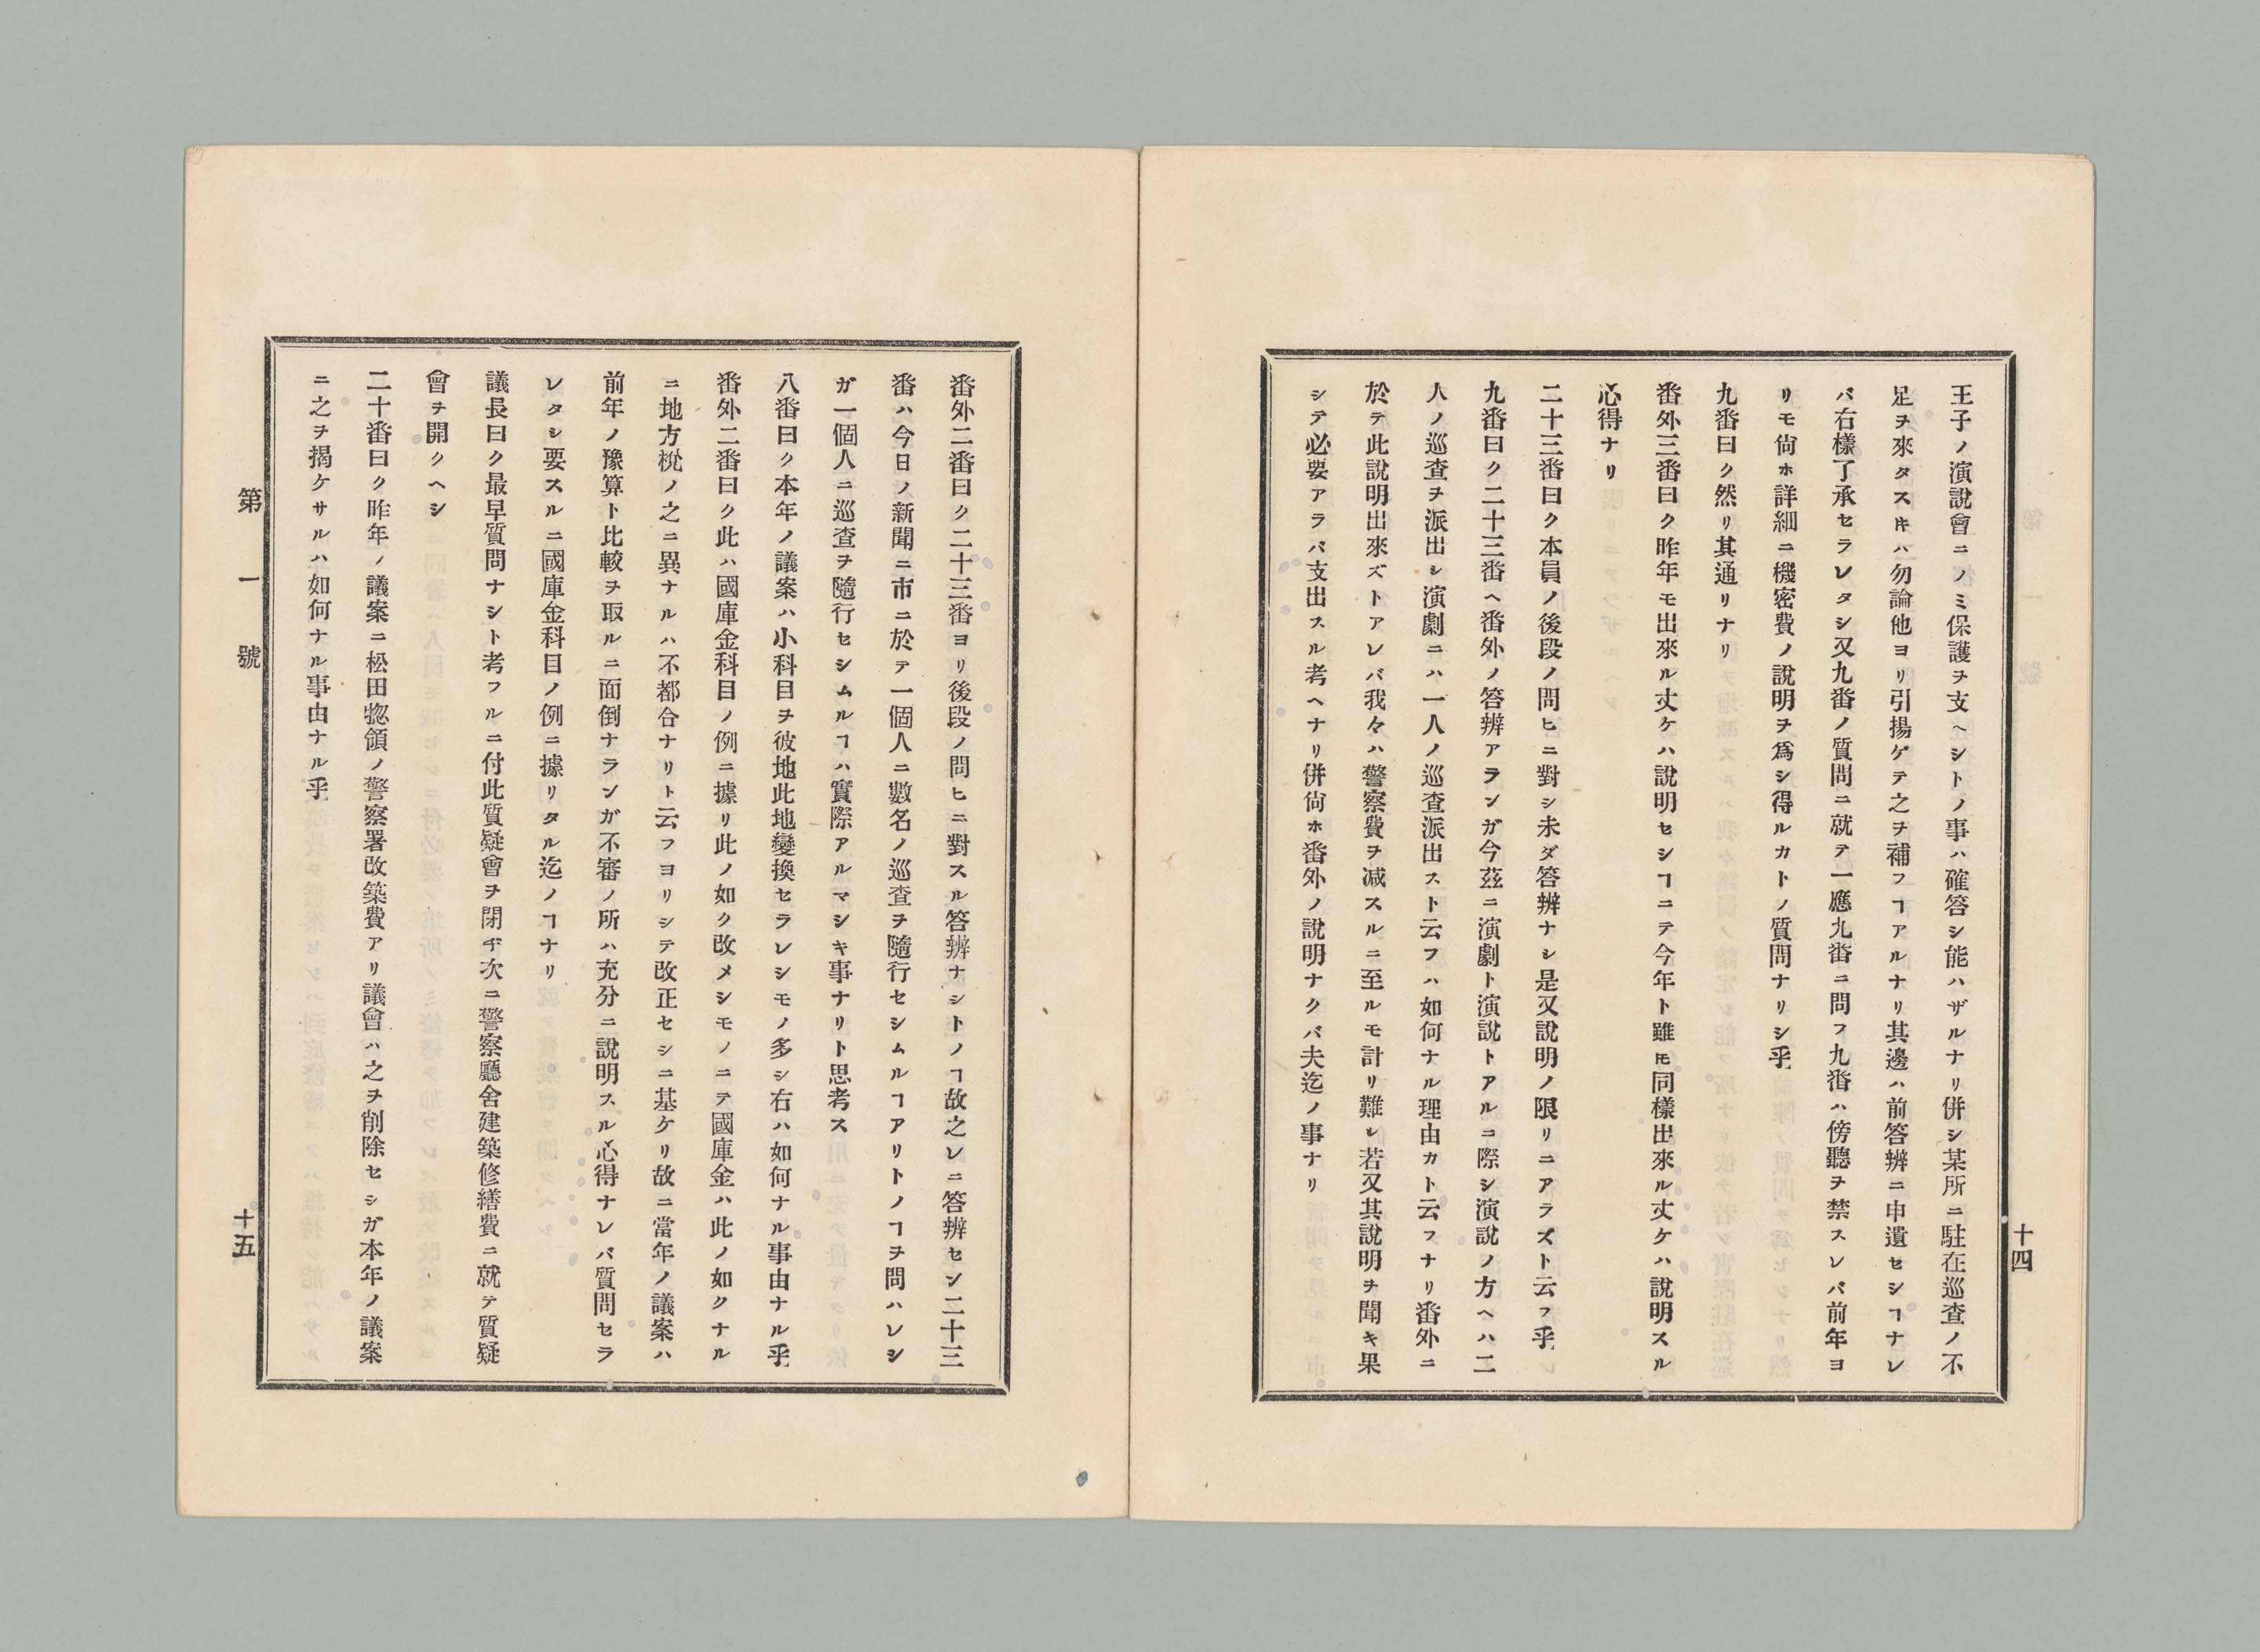 十四
王子ノ演說會ニノミ保護ヲ支ヘシトノ事ハ確答シ能ハザルナリ併シ某所ニ駐在巡查ノ不
足ヲ來タスキハ勿論他ヨリ引揚ケテ之ヲ補フヿアルナリ其邊ハ前答辨ニ申遺セシヿナレ
バ右樣了承セラレタシ又九番ノ質問ニ就テ一應九番ニ問フ九番ハ傍聽ヲ禁スレバ前年ヨ
リモ尙ホ詳細ニ機密費ノ說明ヲ爲シ得ルカトノ質問ナリシ乎
九番曰ク然リ其通リナリ
番外三番曰ク昨年モ出來ル丈ケハ說明セシヿニテ今年ト雖𪜈同樣出來ル丈ケハ說明スル
心得ナリ
二十三番曰ク本員ノ後段ノ問ヒニ對シ未ダ答辨ナシ是又說明ノ限リニアラズト云フ乎
九番曰ク二十三番ヘ番外ノ答辨アランガ今茲ニ演劇ト演說トアルニ際シ演說ノ方ヘハ二
人ノ巡查ヲ派出シ演劇ニハ一人ノ巡查派出スト云フハ如何ナル理由カト云フナリ番外ニ
於テ此說明出來ズトアレバ我々ハ警察費ヲ减スルニ至ルモ計リ難シ若又其說明ヲ聞キ果
シテ必要アラバ支出スル考ヘナリ併尙ホ番外ノ說明ナクバ夫迄ノ事ナリ
番外二番曰ク二十三番ヨリ後段ノ問ヒニ對スル答辨ナシトノヿ故之レニ答辨セン二十三
番ハ今日ノ新聞ニ市ニ於テ一個人ニ數名ノ巡查ヲ隨行セシムルヿアリトノヿヲ問ハレシ
ガ一個人ニ巡查ヲ隨行セシムルヿハ實際アルマシキ事ナリト思考ス
八番曰ク本年ノ議案ハ小科目ヲ彼地此地變換セラレシモノ多シ右ハ如何ナル事由ナル乎
番外二番曰ク此ハ國庫金科目ノ例ニ據リ此ノ如ク改メシモノニテ國庫金ハ此ノ如クナル
ニ地方稅ノ之ニ異ナルハ不都合ナリト云フヨリシテ改正セシニ基ケリ故ニ當年ノ議案ハ
前年ノ豫算ト比較ヲ取ルニ面倒ナランガ不審ノ所ハ充分ニ說明スル心得ナレバ質問セラ
レタシ要スルニ國庫金科目ノ例ニ據リタル迄ノヿナリ
議長曰ク最早質問ナシト考フルニ付此質疑會ヲ閉ヂ次ニ警察廳舍建築修繕費ニ就テ質疑
會ヲ開クヘシ
二十番曰ク昨年ノ議案ニ松田惣領ノ警察署改築費アリ議會ハ之ヲ削除セシガ本年ノ議案
ニ之ヲ揭ケサルハ如何ナル事由ナル乎
第一號
十五